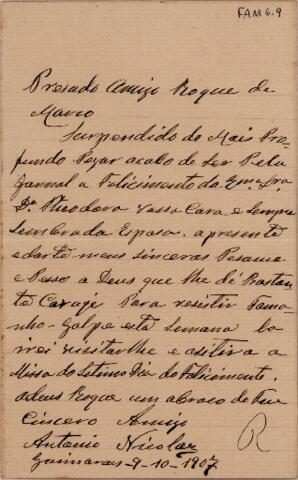 FAM 6.9
Presado Amigo Roque de
Marco
Surpendido do Mais Pro-
fundo Pezar acabo de Ler Pelo
Jornal o Falicimento da Exma Sra
Da Theodora Vossa Cara e Sempre
Lembrada Esposa. apresento
e darte meus sinceros Pesame
e Pesso a Deus que lhe dé Bastan
te Coragi Para resistir Tama-
nho-Golpe esta Semana la
irei visitarlhe e asistira a
Missa do Setimo Dia do Falicimento.
adeus Roque um abraco do Seu
Cincero Amigo
Antonio Nicolar
Guimaraes-9-10-1907
R